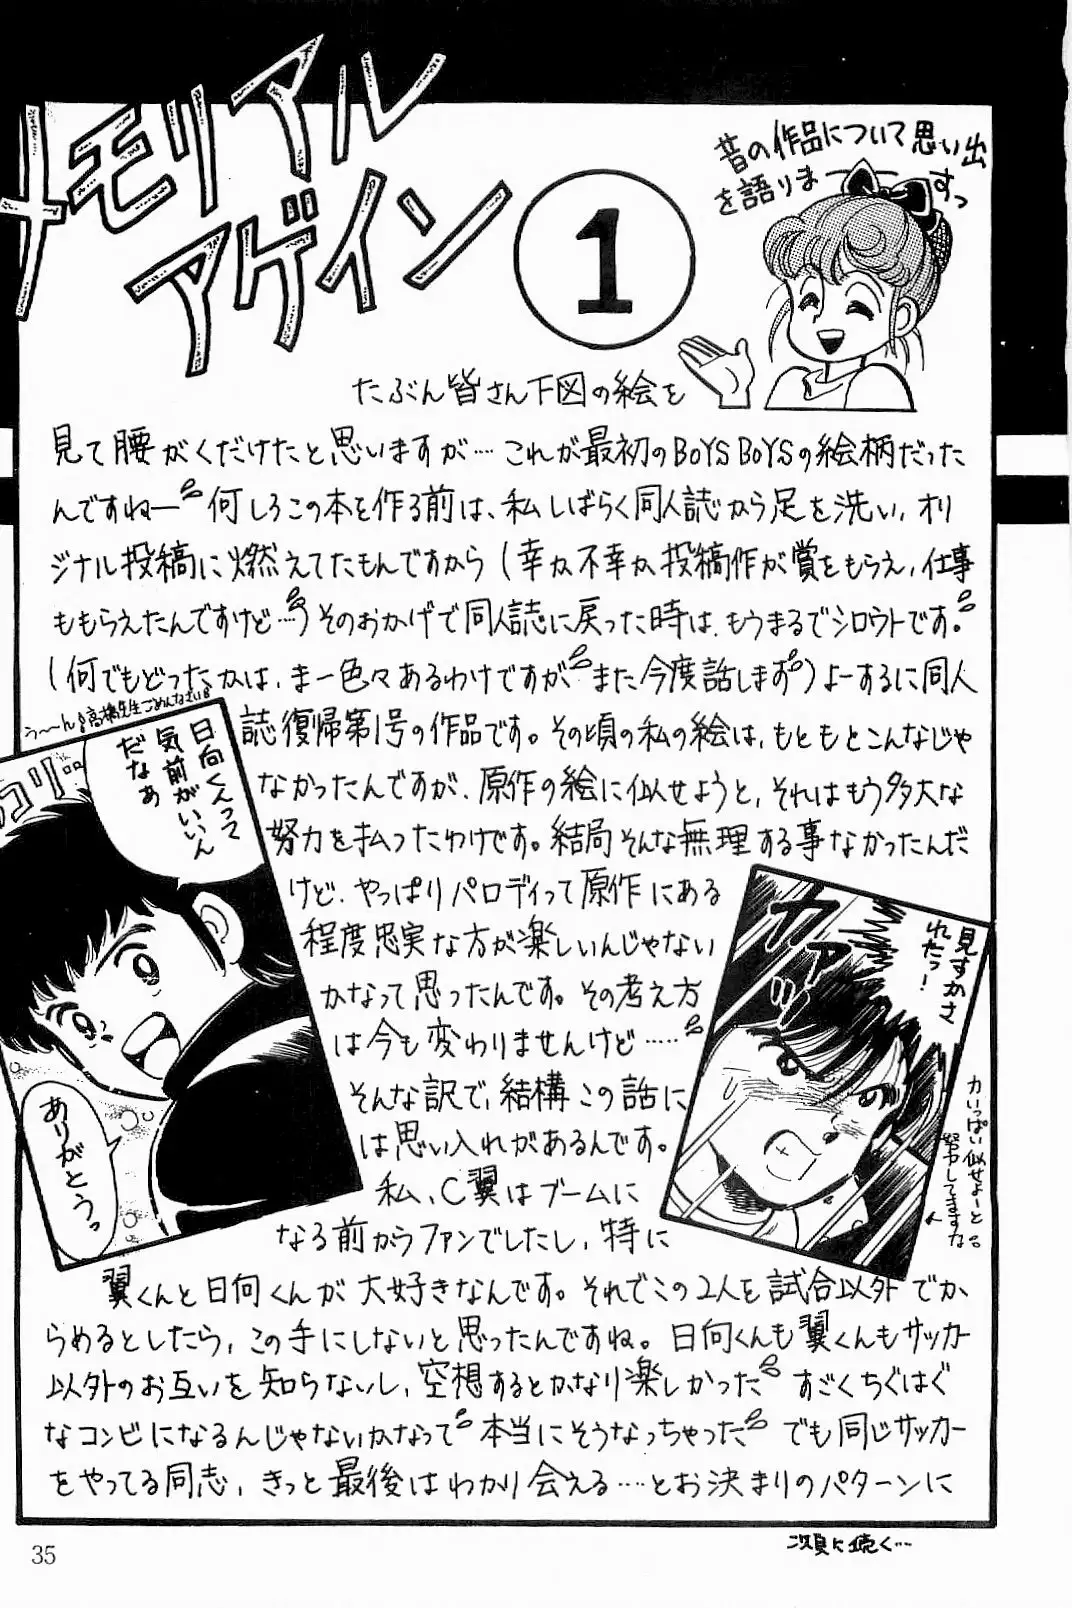 メモリアル
アゲイン
1
昔の作品について思い出
を語りま――すっ
たぶん皆さん下図の絵を
見て腰がくだけたと思いますが…これが最初のBOYS BOYSの絵柄だった
んですねー 何しろこの本を作る前は、私しばらく同人誌から足を洗い、オリ
ジナル投稿に燃えてたもんですから(幸か不幸か投稿作が賞をもらえ、仕事
ももらえたんですけど…)そのおかげで同人誌に戻った時は、もうまるでシロウトです。
(何でもどったかは、まー色々あるわけですが また今度話します)よーするに同人
誌復帰第1号の作品です。その頃の私の絵は、もともとこんなじゃ
なかったんですが、原作の絵に似せようと、それはもう多大な
努力を払ったわけです。結局そんな無理する事なかったんだ
けど、やっぱりパロディって原作にある
程度忠実な方が楽しいんじゃない
かなって思ったんです。その考え方
は今も変わりませんけど……
そんな訳で、結構この話に
は思い入れがあるんです。
私、C翼はブームに
なる前からファンでしたし、特に
翼くんと日向くんが大好きなんです。それでこの2人を試合以外でか
らめるとしたら、この手にしないと思ったんですね。日向くんも翼くんもサッカー
以外のお互いを知らないし、空想するとかなり楽しかった すごくちぐはぐ
なコンビになるんじゃないかなって 本当にそうなっちゃった でも同じサッカー
をやってる同志、きっと最後はわかり会える…とお決まりのパターンに
う〜〜ん高橋先生ごめんなさい
日向くんって
気前がいいん
だなあ
コリ
ありがとうっ
カアッ
見すかさ
れたっ!
力いっぱい似せよーと
努力してますな
次頁に続く…
35